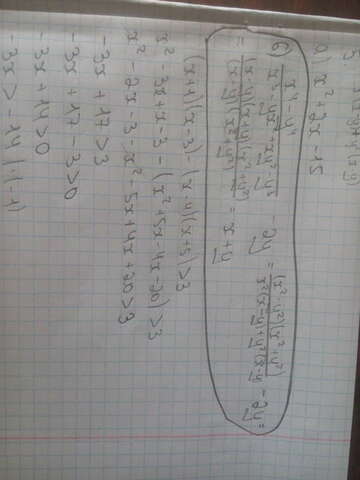 а) x² + 2x - 15
б) (x⁴ - y⁴)/(x³ - yx² + xy² - y³) - 2y = ((x² - y²)(x² + y²))/(x²(x - y) + y²(x - y)) - 2y =
= ((x - y)(x + y)(x² + y²))/((x - y)(x² + y²)) = x + y
(x+1)(x-3) - (x-4)(x+5) > 3
x² - 3x + x - 3 - (x² + 5x - 4x - 20) > 3
x² - 2x - 3 - x² - 5x + 4x + 20 > 3
-3x + 17 > 3
-3x + 17 - 3 > 0
-3x + 14 > 0
-3x > -14 | ·(-1)